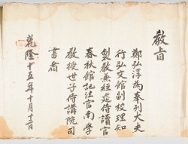 敎旨
鄭弘淳爲奉列大夫
行弘文館副校理知
製敎兼經筵侍讀官
春秋館記注官南學
敎授世子侍講院司
書者
乾隆十五年十月十日